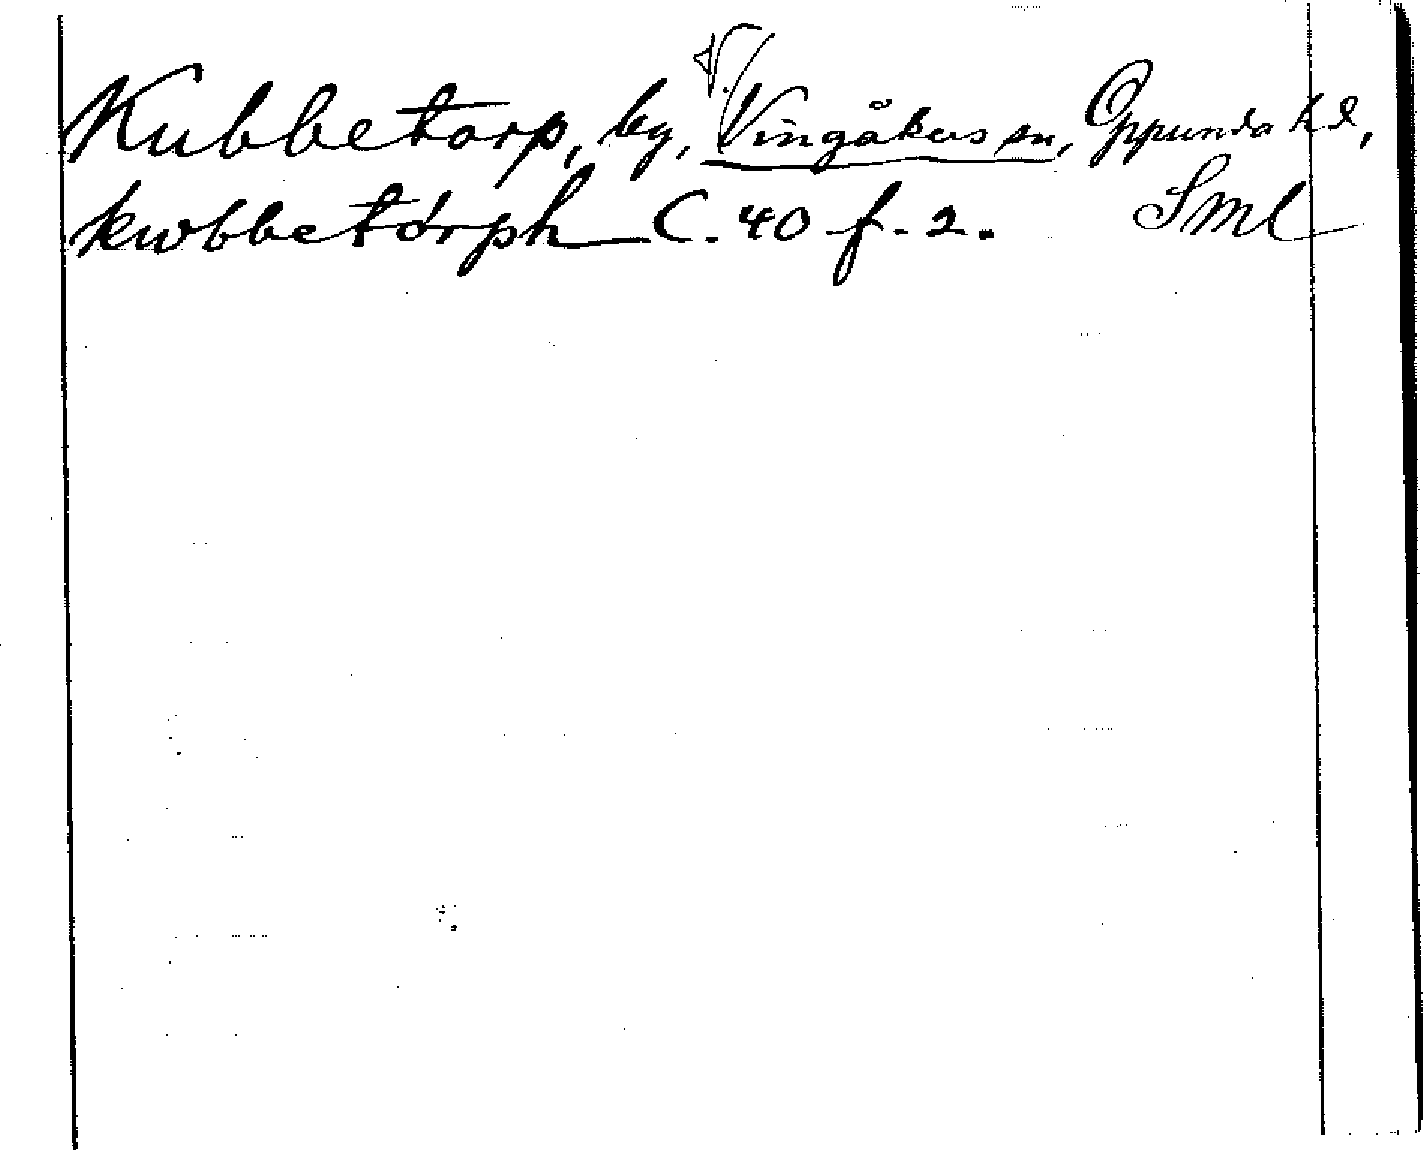 V.
Kubbetorp, by, Vingåkers sn, Oppunda hd,
Sml
kwbbetorph C. 40 f. 2.